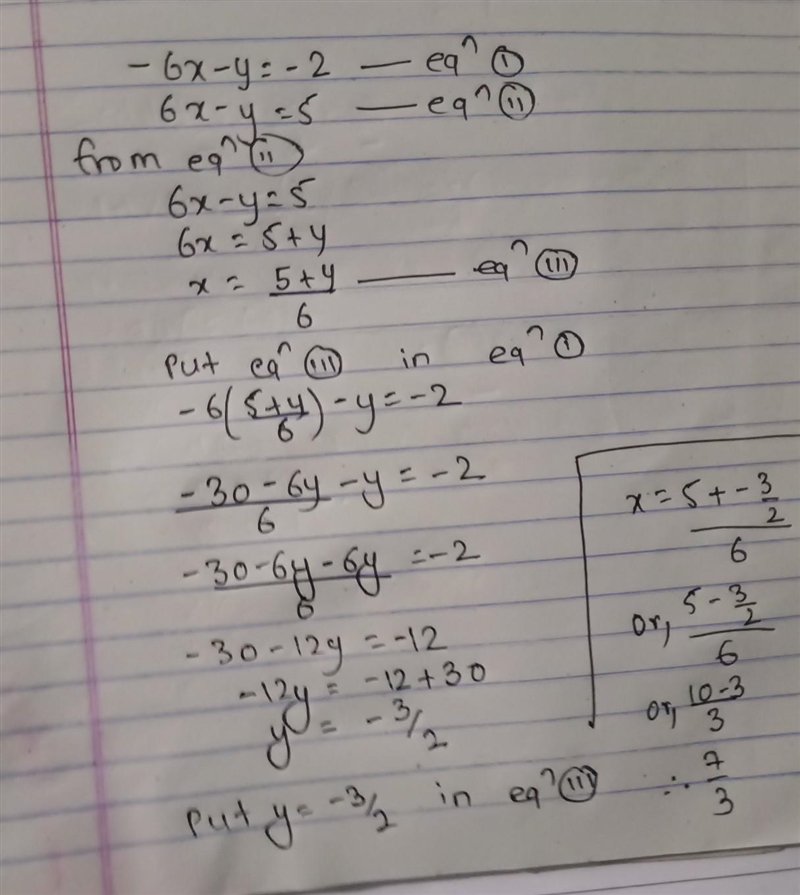 -6x-y=-2 — eqⁿ (I)
6x-y=5 — eqⁿ (II)
from eqⁿ (II)
6x-y=5
6x=5+y
x= (5+y)/6 — eqⁿ (III)
Put eqⁿ (III) in eqⁿ (I)
-6((5+y)/6)-y=-2
(-30-6y)/6-y=-2
(-30-6y-6y)/6=-2
-30-12y=-12
-12y=-12+30
y=-3/2
Put y=-3/2 in eqⁿ (III)
x=(5+-3/2)/6
or, (5-3/2)/6
or, (10-3)/3
∴ 7/3